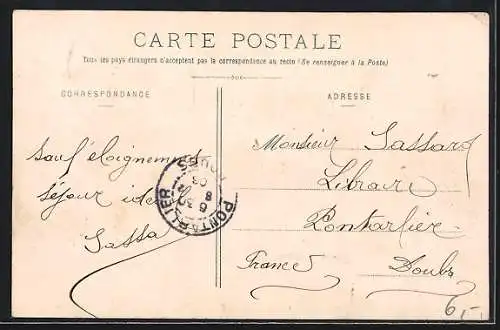 CARTE POSTALE
Tous les pays étrangers n'acceptent pas la correspondance au recto (Se renseigner à la Poste)
CORRESPONDANCE
ADRESSE
sauf éloignement
séjour idéal
Sassa
PONTARLIER
DOUBS
6 30
8
06
Monsieur Sassard
Libraire
Pontarlier
France Doubs
6,-